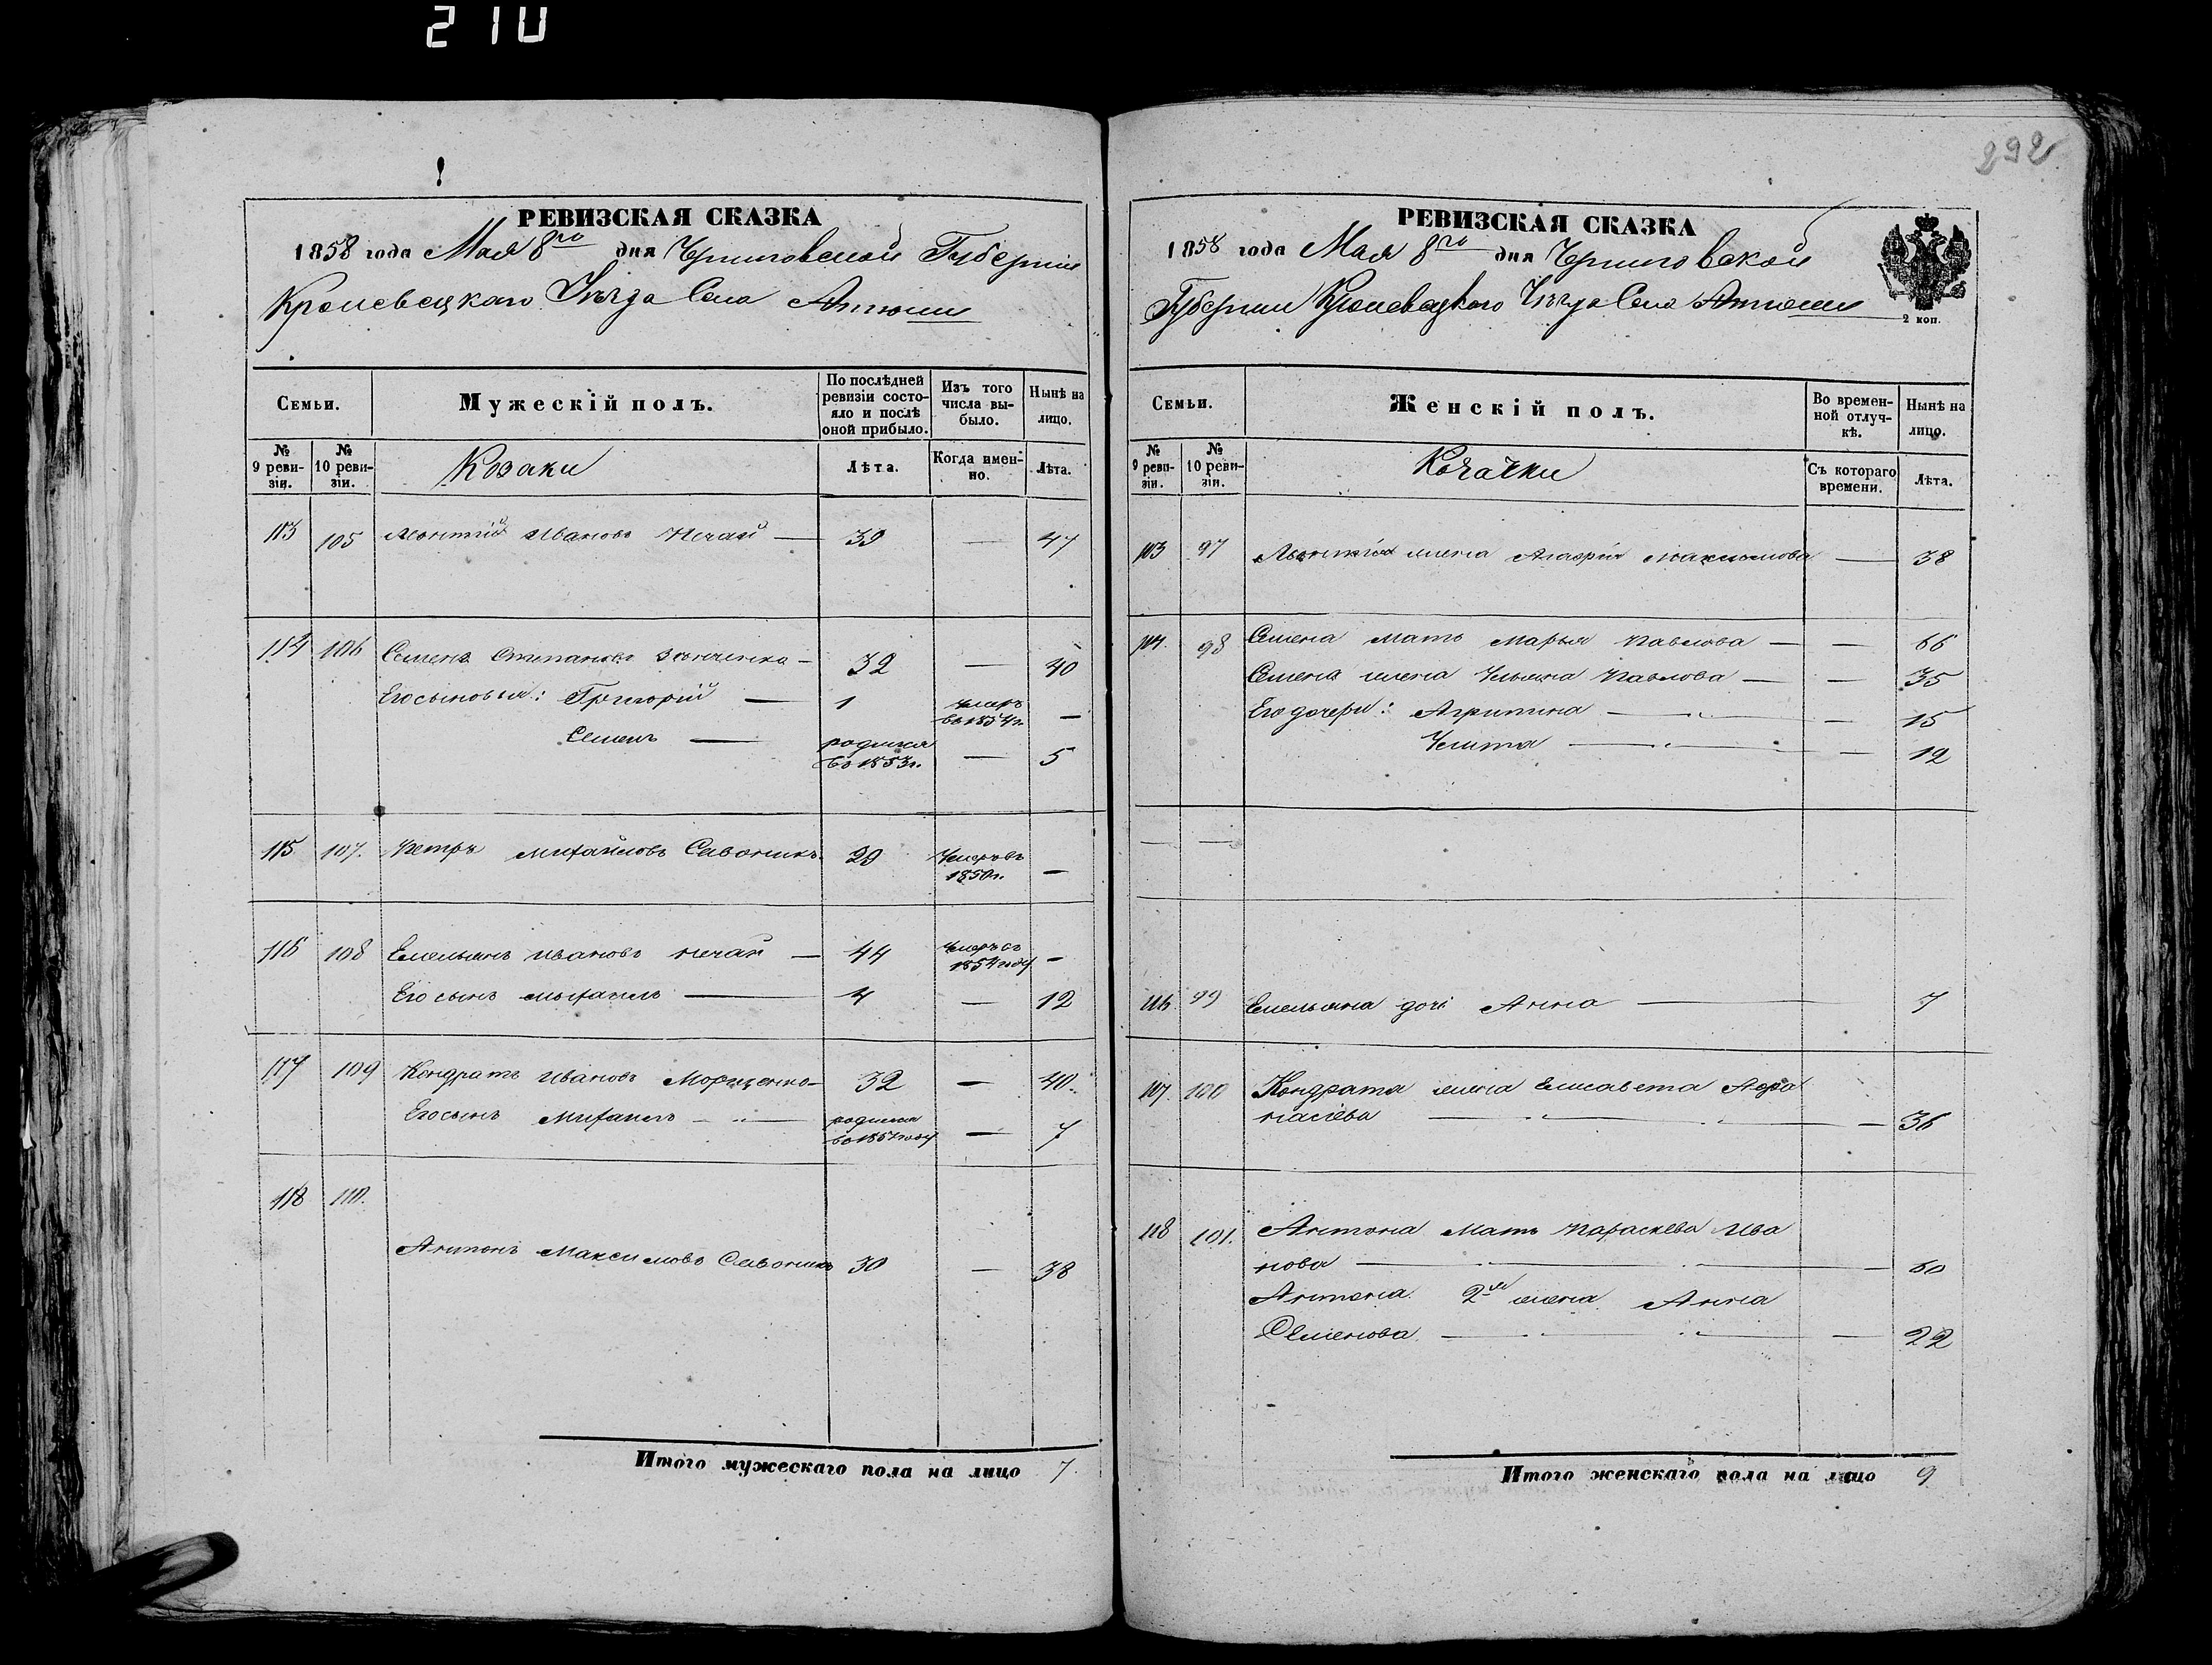 210
РЕВИЗСКАЯ СКАЗКА
1858 года Мая 8го дня Черниговской Губернии
Кролевецкаго Уѣзда Села
Семьи.
Мужескій полъ.
По послѣдней ревизіи состо-яло и послѣ оной прибыло.
Изъ того числа вы-было.
Нынѣ на лицо.
№ 9 реви-зіи.
№ 10 реви-зіи.
Козаки
Лѣта.
Когда имен-но.
Лѣта.
113 105 Леонтий Ивановъ Нечай — 39 — 47
114 106 Семенъ Степановъ — 32 — 40
Его сыновья: Григорий — 1 умеръ въ 1854г. —
Семенъ — родился въ 1853г. — 5
115 107. Петръ Михайловъ Савоникъ 29 Умеръ въ 1850г. —
116 108 Емельянъ Ивановъ Нечай — 44 Умеръ въ 1854 году —
Его сынъ Михаилъ — 4 — 12
117 109 Кондратъ Ивановъ — 32 — 40.
Его сынъ Михаилъ — родился въ году — 7
118 110.
Антонъ Максимовъ Савоникъ 30 — 38
Итого мужескаго пола на лицо 7.
292
РЕВИЗСКАЯ СКАЗКА
1858 года Мая 8го дня Черниговской
Губернии Кролевецкого Уѣзда Села
2 коп.
Семьи.
Женскій полъ.
Во времен-ной отлуч-кѣ.
Нынѣ на лицо.
№ 9 реви-зіи.
№ 10 реви-зіи.
Козачки
Съ котораго времени.
Лѣта.
113 97 Леонтія жена Агафія Максимова — 38
114. 98 Семена мать Марья Павлова — — 66
Семена жена Ульяна Павлова — — 35
Его дочери: Агрипина — — 15
Улита — — 12
— —
116 99 Емельяна дочь Анна — 7
117. 100 Кондрата жена Елисавета Афа
насіева — — 36
118 101. Антона Мать Параскева Ива
нова — — 60
Антона 2я жена Анна
Семенова — — 22
Итого женскаго пола на лицо 9